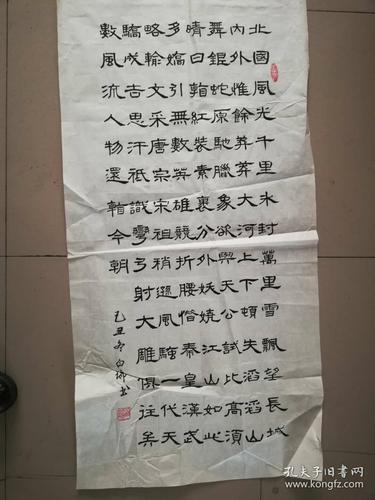 北國風光千里冰封萬里雪飄望長城
內外惟餘莽莽大河上下頓失滔滔山
舞銀蛇原馳臘象欲與天公試比高須
晴日看紅裝素裹分外妖嬈江山如此
多嬌引無數英雄競折腰惜秦皇漢武
略輸文采唐宗宋祖稍遜風騷一代天
驕成吉思汗祇識彎弓射大雕俱往矣
數風流人物還看今朝
乙丑冬白書
孔夫子旧书网
www.kongfz.com